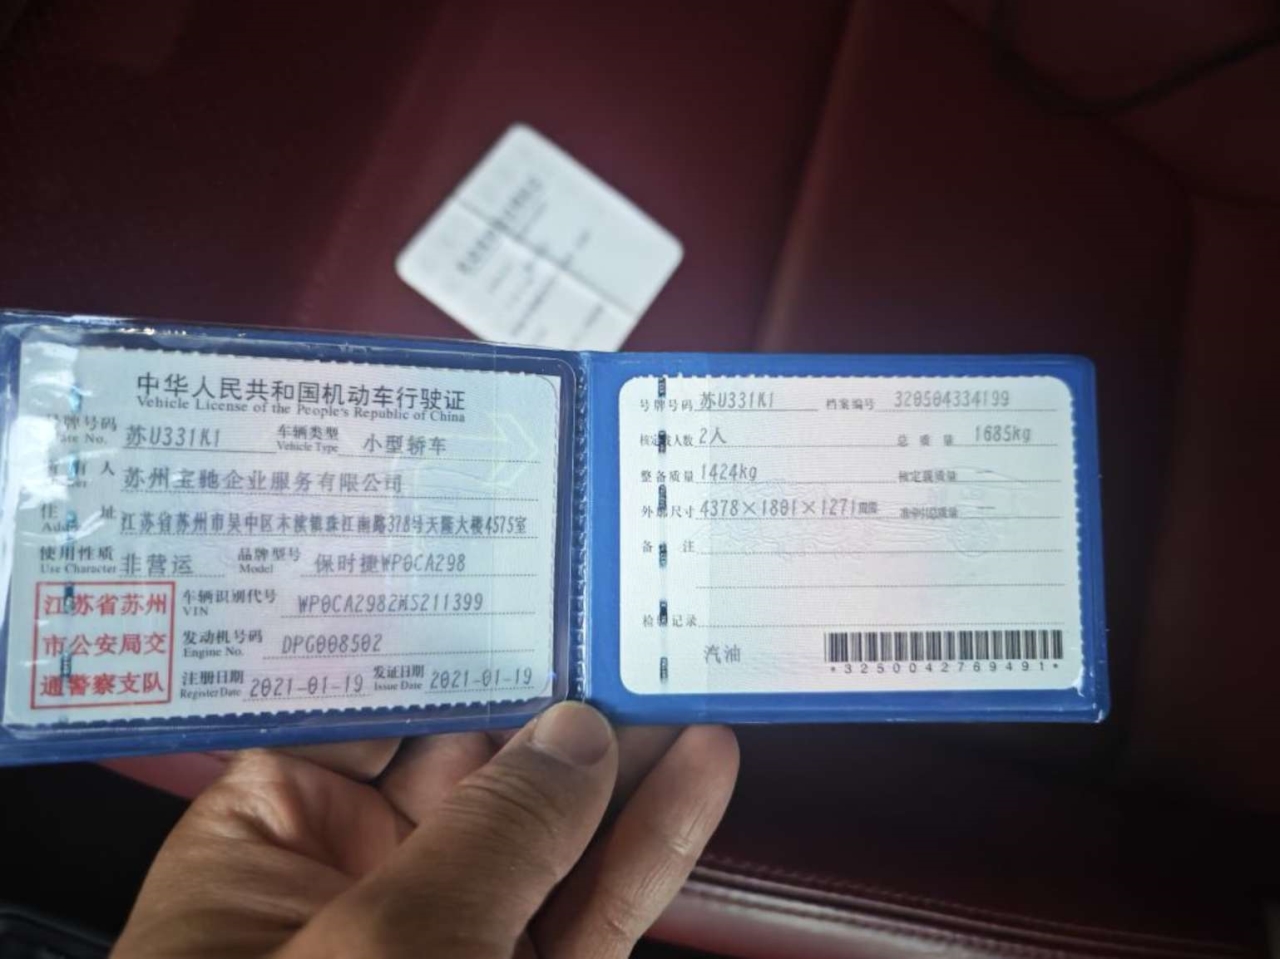 中华人民共和国机动车行驶证
Vehicle License of the People's Republic of China
号牌号码 苏U331K1 车辆类型 小型轿车
Plate No. Vehicle Type
所有人 苏州宝驰企业服务有限公司
住址 江苏省苏州市吴中区木渎镇珠江南路378号天隆大楼4575室
Address
使用性质 非营运 品牌型号 保时捷WP0CA298
Use Character Model
车辆识别代号 WP0CA2982MS211399
VIN
发动机号码 DPG008502
Engine No.
注册日期 2021-01-19 发证日期 2021-01-19
Register Date Issue Date
江苏省苏州
市公安局交
通警察支队
号牌号码 苏U331K1 档案编号 320504334199
核定载人数 2人 总质量 1685kg
整备质量 1424kg 核定载质量 —
外廓尺寸 4378×1801×1271mm 准牵引总质量 —
备注
检验记录
汽油
*3250042769491*